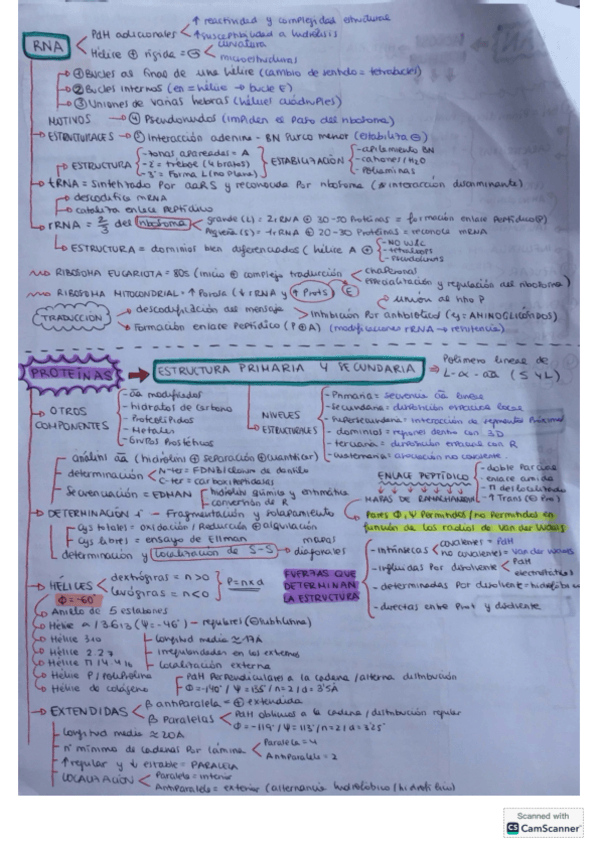 RNA
PdH adicionales
↑ reactividad y complejidad estructural
↑ susceptibilidad a hidrólisis
Hélice ⊕ rígida =
curvatura
microestructuras
① Bucles al final de una hélice (cambio de sentido = tetrabucles)
② Bucles internos (en = hélice → bucle E)
③ Uniones de varias hebras (hélices cuádruples)
MOTIVOS ESTRUCTURALES
④ Pseudonudos (impiden el paso del ribosoma)
⑤ Interacción adenina - BN surco menor (estabiliza ⊖)
ESTRUCTURA
- zonas apareadas = A
- 2º = trébol (4 brazos)
- 3º = Forma L (no plana)
ESTABILIZACIÓN
- apilamiento BN
- cationes / H2O
- Poliaminas
tRNA = sintetizado por aaRS y reconocido por ribosoma (≠ interacción discriminante)
descodifica mRNA
cataliza enlace peptídico
rRNA = 2/3 del ribosoma
grande (L) = 2 rRNA ⊕ 30-50 Proteínas = formación enlace Peptídico (P)
Pequeña (S) = 1 rRNA ⊕ 20-30 Proteínas = reconoce mRNA
ESTRUCTURA = dominios bien diferenciados (hélice A ⊕
- NO W&C
- tetraloops
- Pseudonudos
RIBOSOMA EUCARIOTA = 80S (inicio ⊕ complejo traducción
chaperonas
especialización y regulación del ribosoma)
RIBOSOMA MITOCONDRIAL = ↑ Poroso (↓ rRNA y ↑ Prots)
E
unión al sitio P
TRADUCCIÓN
descodificación del mensaje > Inhibición por antibiótico (ej: AMINOGLICÓSIDOS)
Formación enlace Peptídico (P⊕A) (modificaciones rRNA → resistencia)
PROTEÍNAS
ESTRUCTURA PRIMARIA Y SECUNDARIA
Polímero lineal de
L-α-aa (S y L)
OTROS COMPONENTES
- aa modificados
- hidratos de carbono
- Proteolípidos
- Metales
- Grupos Prostéticos
NIVELES ESTRUCTURALES
- Primaria = secuencia aa lineal
- Secundaria = disposición espacial local
- Supersecundaria = interacción de segmentos próximos
- dominios = regiones dentro con 3D
- terciaria = disposición espacial con R
- cuaternaria = asociación no covalente
análisis aa (hidrólisis ⊕ separación ⊕ cuantificar)
determinación
N-ter = FDNB | cloruro de dansilo
C-ter = carboxipeptidasas
Secuenciación = EDMAN
hidrólisis química y enzimática
conversión de R
ENLACE PEPTÍDICO
- doble Parcial
- enlace amida
- π deslocalizado
- ↑ Trans (⊖ Pro)
MAPAS DE RAMACHANDRAN
DETERMINACIÓN 1ª
- Fragmentación y solapamiento
Pares Φ, Ψ Permitidos / no Permitidos en
función de los radios de Van der Waals
Cys totales = oxidación / Reducción ⊕ alquilación
Cys libres = ensayo de Ellman
determinación y localización de S-S
mapas diagonales
FUERZAS QUE
DETERMINAN
LA ESTRUCTURA
- intrínsecas
covalentes = PdH
no covalentes = Van der Waals
- influidas Por disolvente
PdH
electrostáticas
- determinadas Por disolvente = hidrofóbica
- directas entre Prot y disolvente
HÉLICES
dextrógiras = n > 0
levógiras = n < 0
P = n × d
Φ = -60º
Anillo de 5 eslabones
Hélice α / 3.6 13 (Ψ = -46º)
Hélice 3 10
Hélice 2.2 7
Hélice π / 4.4 16
- Longitud media ≈ 17Å
- irregularidades en los extremos
- Localización externa
Hélice P / Poliprolina
Hélice de colágeno
EXTENDIDAS
PdH Perpendiculares a la cadena / alterna distribución
Φ = -140º / Ψ = 135º / n = 2 / d = 3'5Å
β antiparalela = ⊕ extendida
β Paralelas
PdH oblicuos a la cadena / distribución regular
Φ = -119º / Ψ = 113º / n = 2 / d = 3'25
Longitud media ≈ 20Å
- nº mínimo de cadenas por lámina
Paralela = 4
AntiParalela = 2
- ↑ regular y ↓ estable = PARALELA
- LOCALIZACIÓN
Paralela = interior
AntiParalela = exterior (alternancia hidrofóbico / hidrofílico)
Scanned with
CS CamScanner